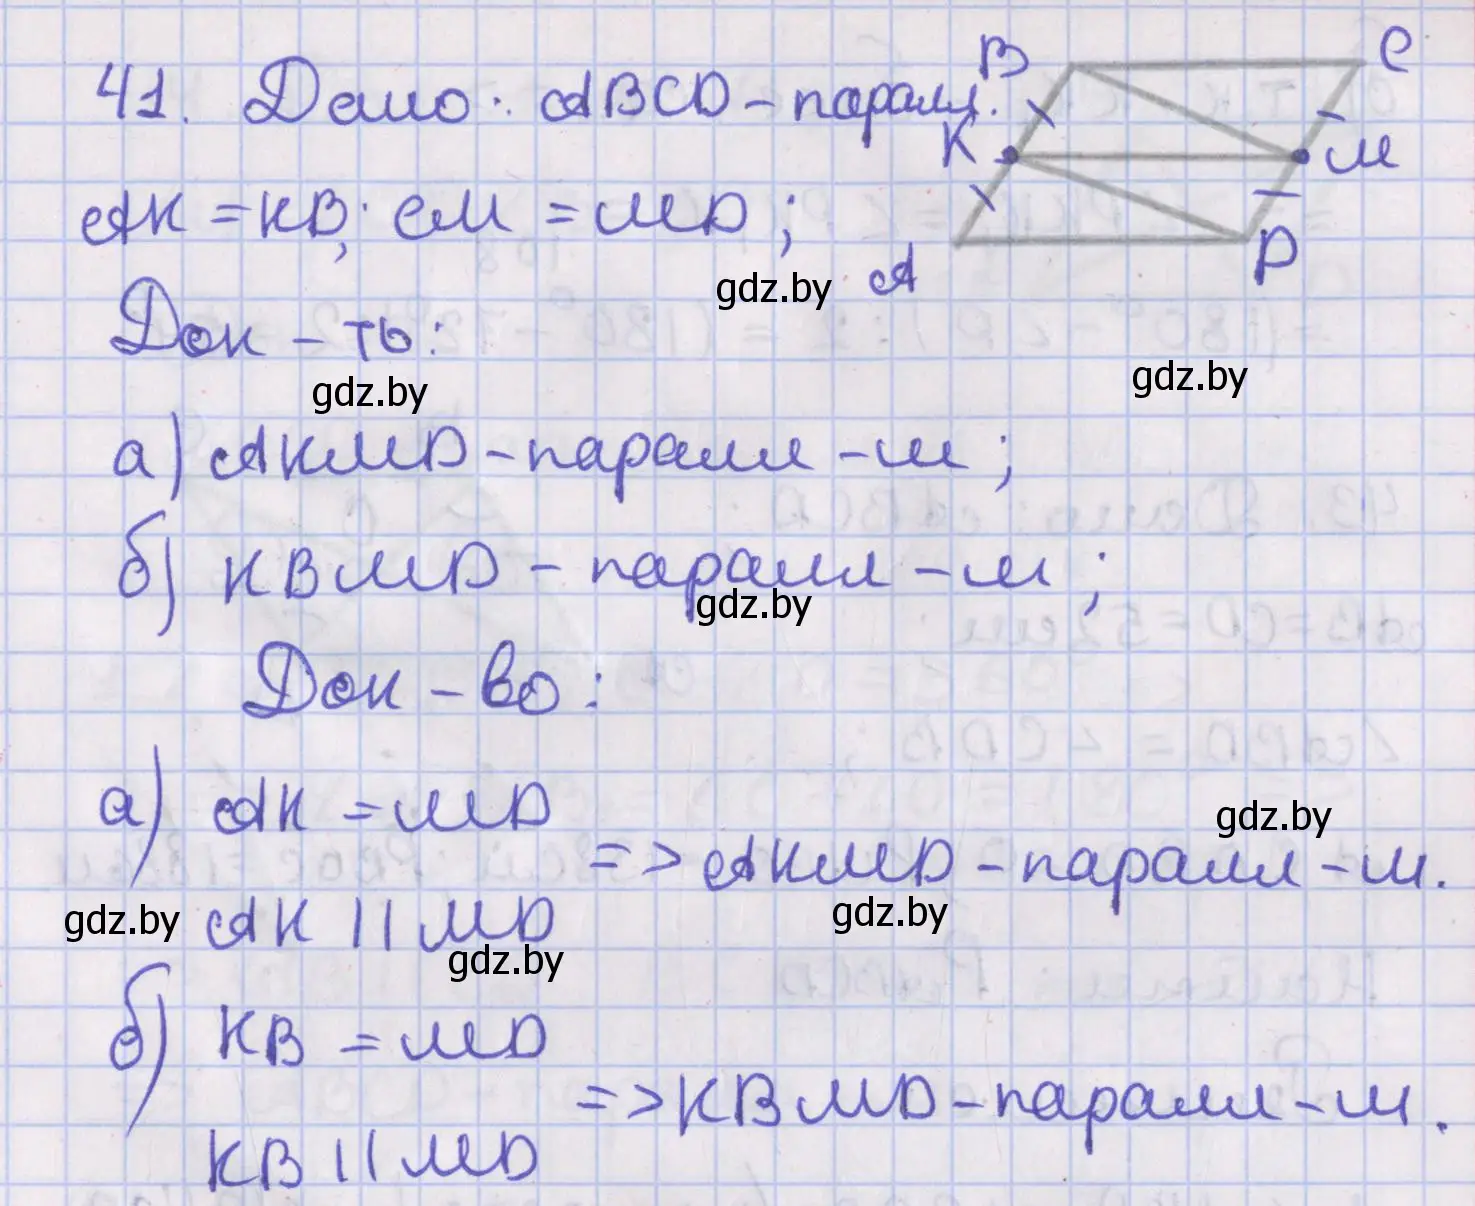 41. Дано: ABCD – паралл.
B C
K M
A D
AK = KB; CM = MD;
gdz.by
Док – ть:
gdz.by gdz.by
а) AKMD – паралл – м;
б) KBMD – паралл – м;
gdz.by
Док – во:
а) AK = MD
gdz.by
=> AKMD – паралл – м.
gdz.by AK || MD gdz.by
gdz.by
б) KB = MD
=> KBMD – паралл – м.
KB || MD